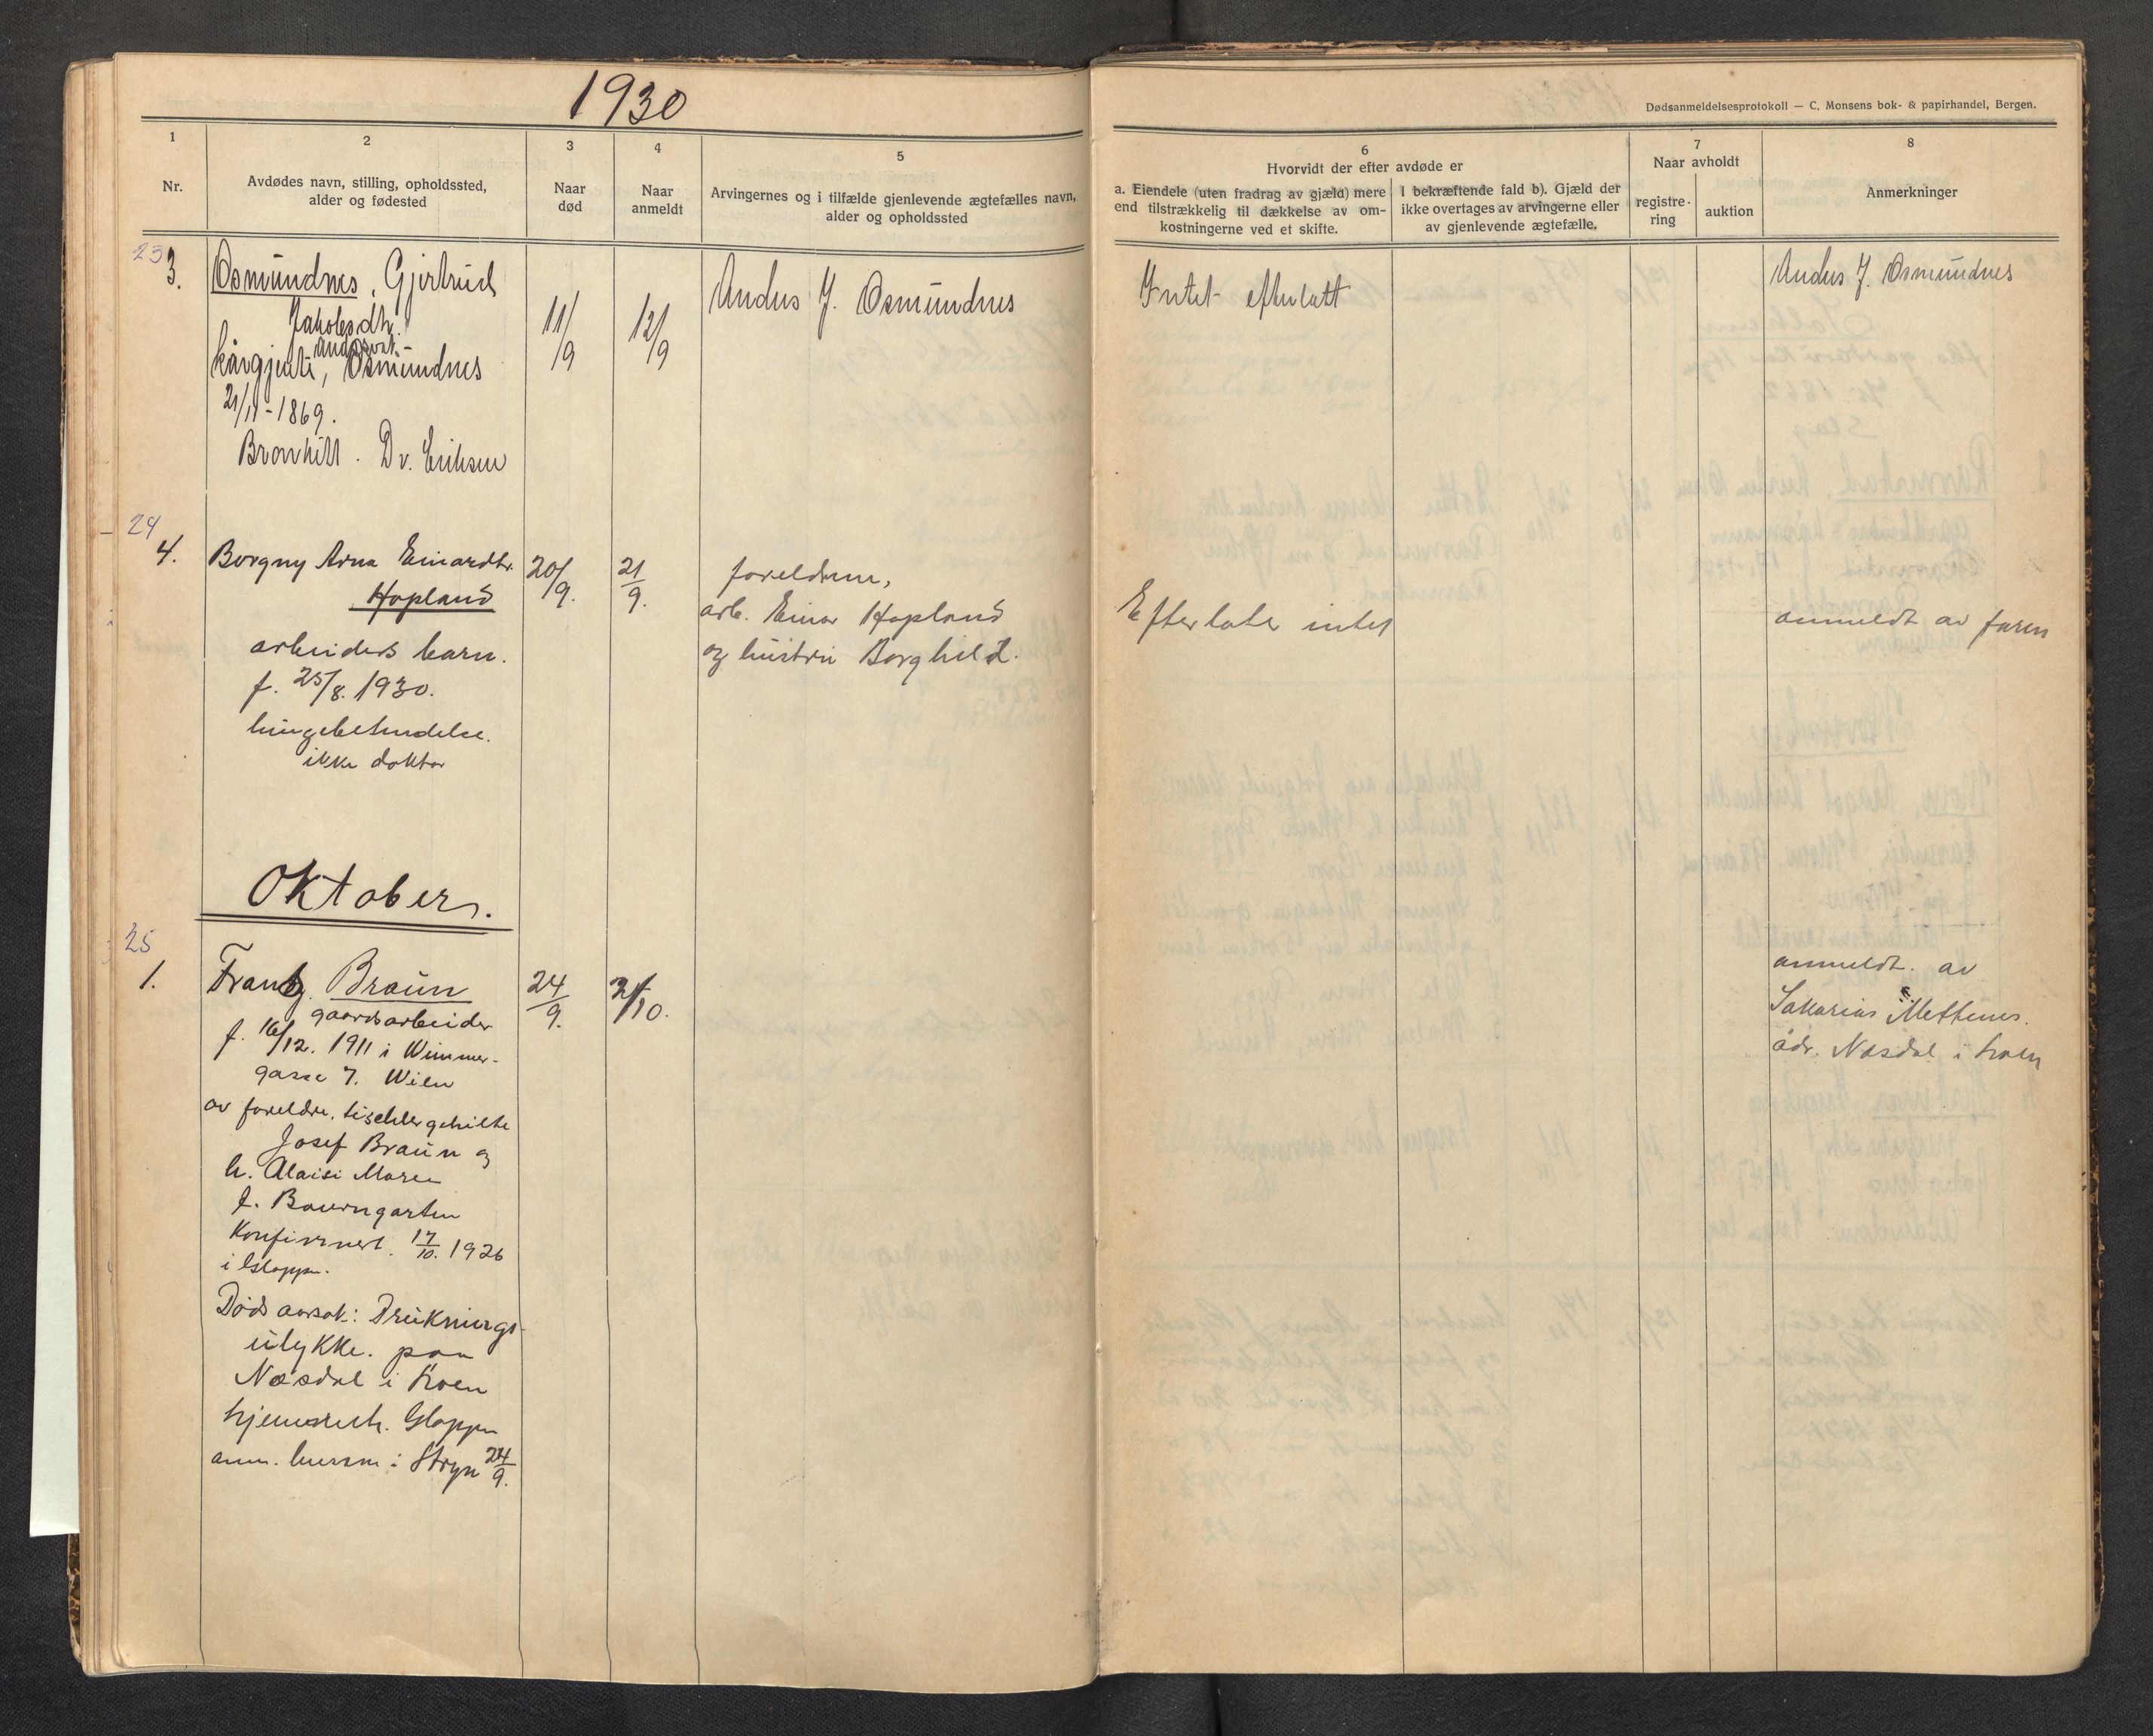 1930
Dødsanmeldelsesprotokoll — C. Monsens bok- & papirhandel, Bergen.
1
Nr.
2
Avdødes navn, stilling, opholdssted,
alder og fødested
3
Naar
død
4
Naar
anmeldt
5
Arvingernes og i tilfælde gjenlevende ægtefælles navn,
alder og opholdssted
6
Hvorvidt der efter avdøde er
a. Eiendele (uten fradrag av gjæld) mere
end tilstrækkelig til dækkelse av om-
kostningerne ved et skifte.
I bekræftende fald b). Gjæld der
ikke overtages av arvingerne eller
av gjenlevende ægtefælle.
7
Naar avholdt
registre-
ring
auktion
8
Anmerkninger
23
3.
Osmundnes, Gjertrud
Jakobsdtr.
kårgjente, Osmundnes
21/11-1869.
Bronkitt. Dr. Eriksen
11/9
12/9
Andus J. Osmundnes
Intet efterlatt
Andus J. Osmundnes
24
4.
Borgny Arna Einardtr.
Hopland
arbeiders barn.
f. 25/8. 1930.
lungebetendelse.
ikke doktor
20/9.
21/9.
foreldrene,
arb. Einar Hopland
og hustru Borghild.
Efterlater intet
anmeldt av faren
Oktober.
25
1.
Frantz Braun
gaardsarbeider
f. 16/12. 1911 i Wimmer-
gasse 7. Wien
av foreldre, tischlergehilfe
Josef Braun og
h. Aloisi Maree
f. Baumgarten
Konfirmert. 17/10. 1926
i Gloppen.
Døds aarsak: Drukningsulykke. paa
Næsdal i Loen
hjemsreth. Gloppen
anm. lensm i Stryn 24/9.
24/9.
2/10.
anmeldt. av
Sakarias Mettenes.
adr. Næsdal i Loen